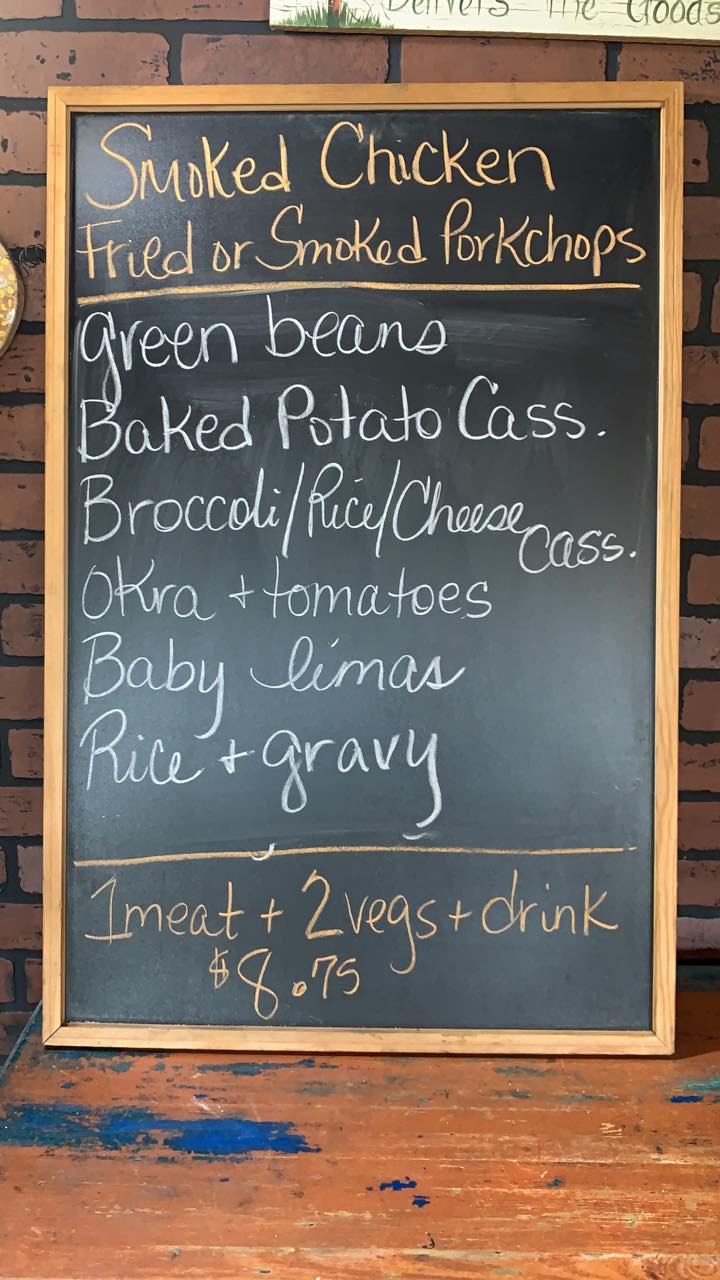 Delivers The Goods
Smoked Chicken
Fried or Smoked Porkchops
green beans
Baked Potato Cass.
Broccoli/Rice/Cheese Cass.
Okra + tomatoes
Baby limas
Rice + gravy
1 meat + 2 vegs + drink
$8.75